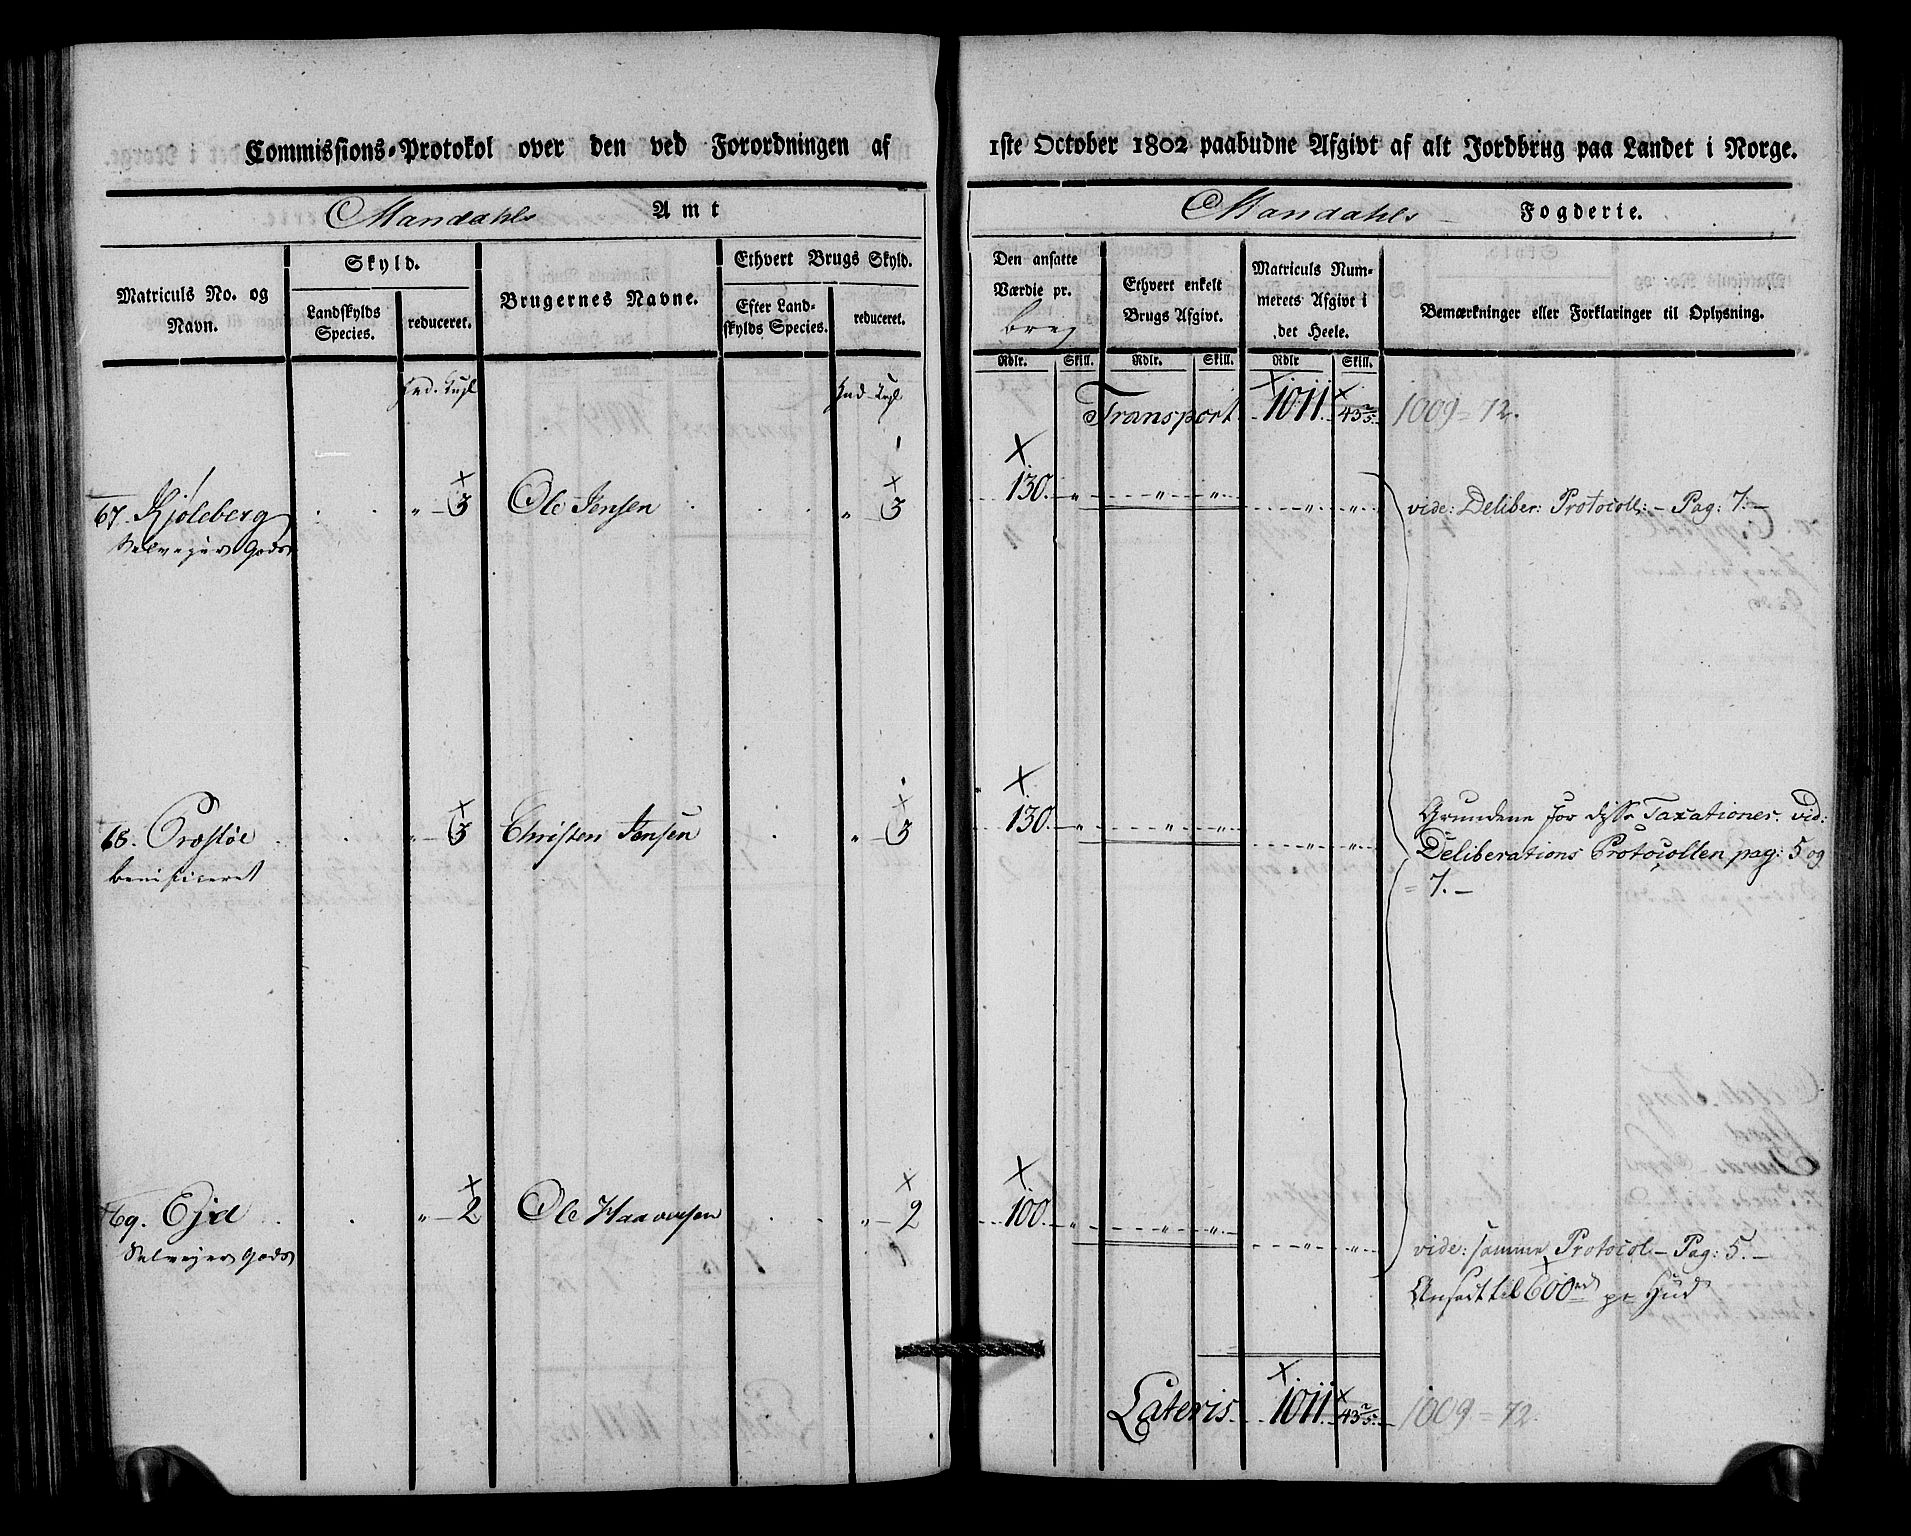 Commissions-Protokol over den ved Forordningen af
Mandahls Amt
Matriculs No. og Navn.
Skyld.
Landskylds Species.
reduceret.
Brugernes Navne.
Ethvert Brugs Skyld.
Efter Landskylds Species.
reduceret.
67. Kjøleberg „ 3 Ole Jensen „ 3
Selvejer Gods
68. Præstøe „ 3 Christen Jensen „ 3
benificeret
69. Ejd „ 2 Ole Haaversen „ 2
Selvejer Gods
1ste October 1802 paabudne Afgivt af alt Jordbrug paa Landet i Norge.
Mandahls Fogderie.
Den ansatte Værdie pr. brug
Ethvert enkelt Brugs Afgivt.
Matriculs Nummerets Afgivt i det Heele.
Bemærkninger eller Forklaringer til Oplysning.
Rdlr. Skill. Rdlr. Skill. Rdlr Skill.
Transport 1011 43 2/5 1009 = 72.
130 „ „ „ „ „ vide: Deliber: Protocoll: - Pag: 7. -
130 „ „ „ „ „ Grundene for disse Taxationer vid:
Deliberations Protocollen pag: 5 og
= 7. -
100 „ „ „ „ „ vide: samme Protocol - Pag: 5. -
Ansadt til 600 rd pr Hud
Lateris 1011 43 2/5 1009 = 72